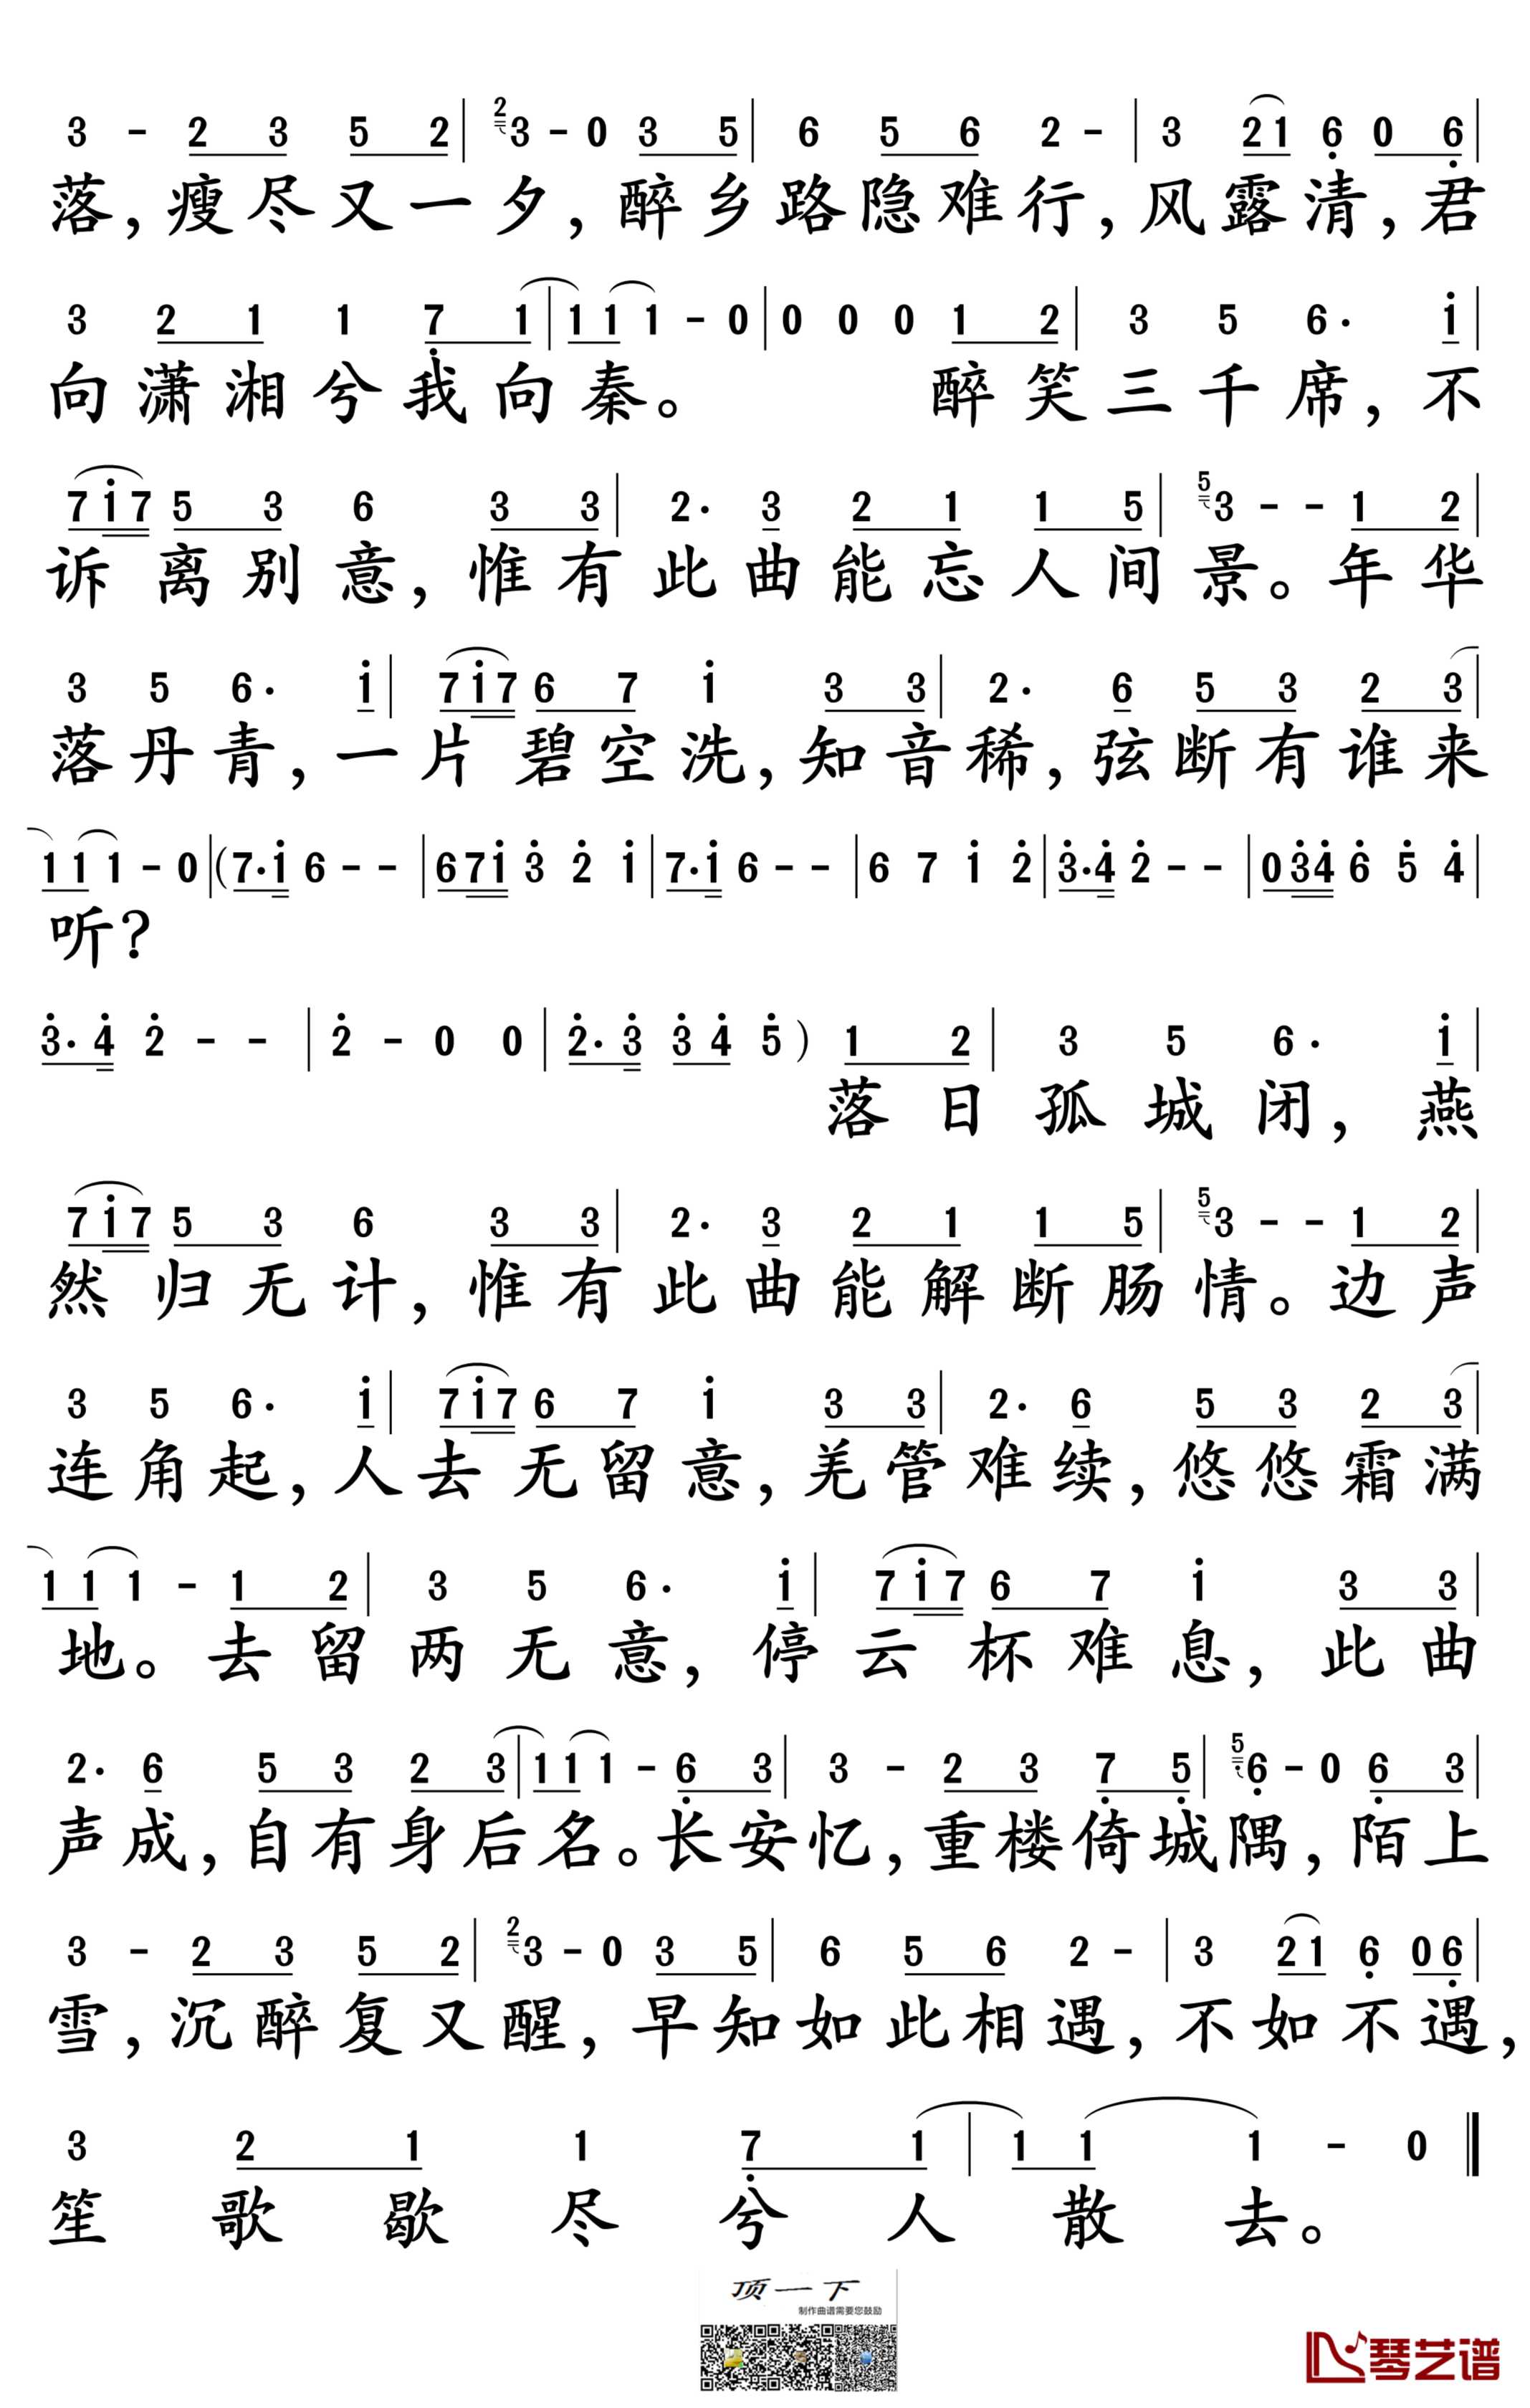 3 - 2 3 5 2 | 2 3 - 0 3 5 | 6 5 6 2 - | 3 2 1 6 0 6 |
落，瘦尽又一夕，醉乡路隐难行，风露清，君
3 2 1 1 7 1 | 1 1 1 - 0 | 0 0 0 1 2 | 3 5 6 · i |
向潇湘兮我向秦。 醉笑三千席，不
7 i 7 5 3 6 3 3 | 2 · 3 2 1 1 5 | 5 3 - - 1 2 |
诉离别意，惟有此曲能忘人间景。年华
3 5 6 · i | 7 i 7 6 7 i 3 3 | 2 · 6 5 3 2 3 |
落丹青，一片碧空洗，知音稀，弦断有谁来
1 1 1 - 0 | ( 7 · i 6 - - | 6 7 i 3 2 i | 7 · i 6 - - | 6 7 i 2 | 3 · 4 2 - - | 0 3 4 6 5 4 |
听？
3 · 4 2 - - | 2 - 0 0 | 2 · 3 3 4 5 ) 1 2 | 3 5 6 · i |
落日孤城闭，燕
7 i 7 5 3 6 3 3 | 2 · 3 2 1 1 5 | 5 3 - - 1 2 |
然归无计，惟有此曲能解断肠情。边声
3 5 6 · i | 7 i 7 6 7 i 3 3 | 2 · 6 5 3 2 3 |
连角起，人去无留意，羌管难续，悠悠霜满
1 1 1 - 1 2 | 3 5 6 · i | 7 i 7 6 7 i 3 3 |
地。去留两无意，停云杯难息，此曲
2 · 6 5 3 2 3 | 1 1 1 - 6 3 | 3 - 2 3 7 5 | 5 6 - 0 6 3 |
声成，自有身后名。长安忆，重楼倚城隅，陌上
3 - 2 3 5 2 | 2 3 - 0 3 5 | 6 5 6 2 - | 3 2 1 6 0 6 |
雪，沉醉复又醒，早知如此相遇，不如不遇，
3 2 1 1 7 1 | 1 1 1 - 0 ‖
笙歌歇尽兮人散去。
顶一下
制作曲谱需要您鼓励
琴艺谱